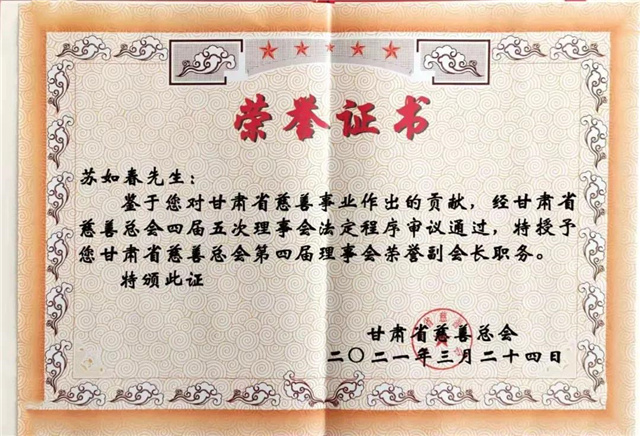 荣誉证书
苏如春先生：
鉴于您对甘肃省慈善事业作出的贡献，经甘肃省
慈善总会四届五次理事会法定程序审议通过，特授予
您甘肃省慈善总会第四届理事会荣誉副会长职务。
特颁此证
甘肃省慈善总会
二〇二一年三月二十四日